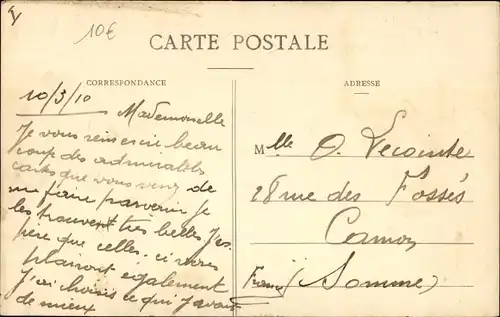 10€
CARTE POSTALE
CORRESPONDANCE
ADRESSE
10/3/10
Mademoiselle
Je vous remercie beau
coup des admirables
cartes que vous venez de
me faire parvenir je
les trouvent très belles J'es
père que celles-ci vous
plairont egalement
J'ai choisis ce qui j'avais
de mieux
Mlle O. Lecointe
28 rue des Fossés
Camon
France (Somme)